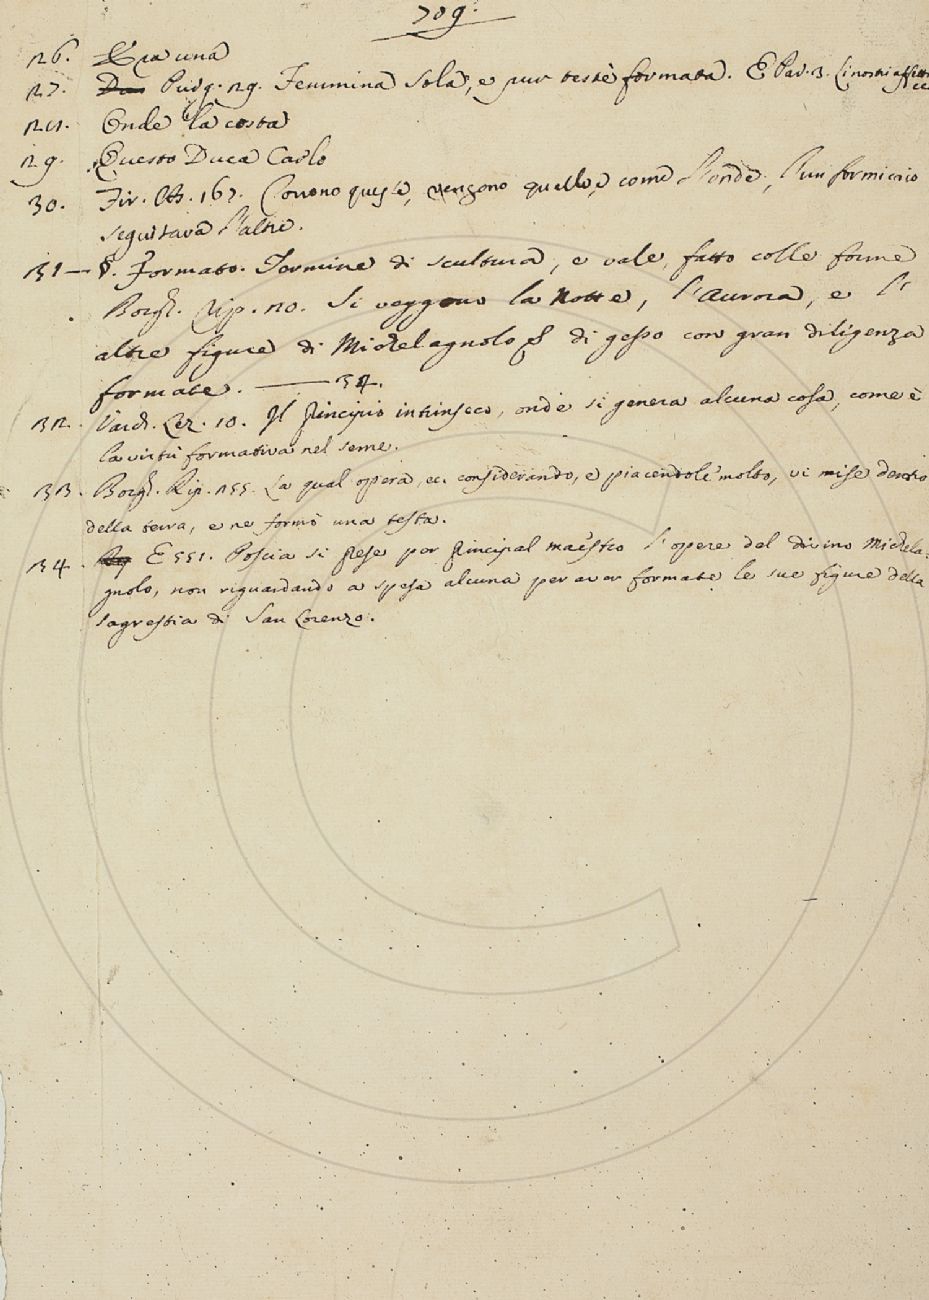 709.
26. Era una
27. Purg. 29. Femmina sola, e pur testè formata. E Par. 3. Li nostri affetti
28. Onde la costa
29. Questo Duca Carlo
30. Fir. As. 167. Corrono queste, vengono quelle, come l'onde, l'un formicaio
seguitava l'altro.
31 — §. Formato. Termine di scultura, e vale, fatto colle forme
Borgh. Rip. 20. Si veggono la Notte, l'Aurora, e l'
altre figure di Michelagnolo di gesso con gran diligenza
formate. — 34.
32. Varch. Lez. 10. Il principio intrinseco, onde si genera alcuna cosa, come è
la virtù formativa nel seme.
33. Borgh. Rip. 255. La qual opera, ec. considerando, e piacendole molto, vi mise dentro
della terra, e ne formò una testa.
34. E 551. Poscia si prese per principal maestro l'opere del divino Michela-
gnolo, non riguardando a spesa alcuna per aver formate le sue figure della
sagrestia di San Lorenzo.